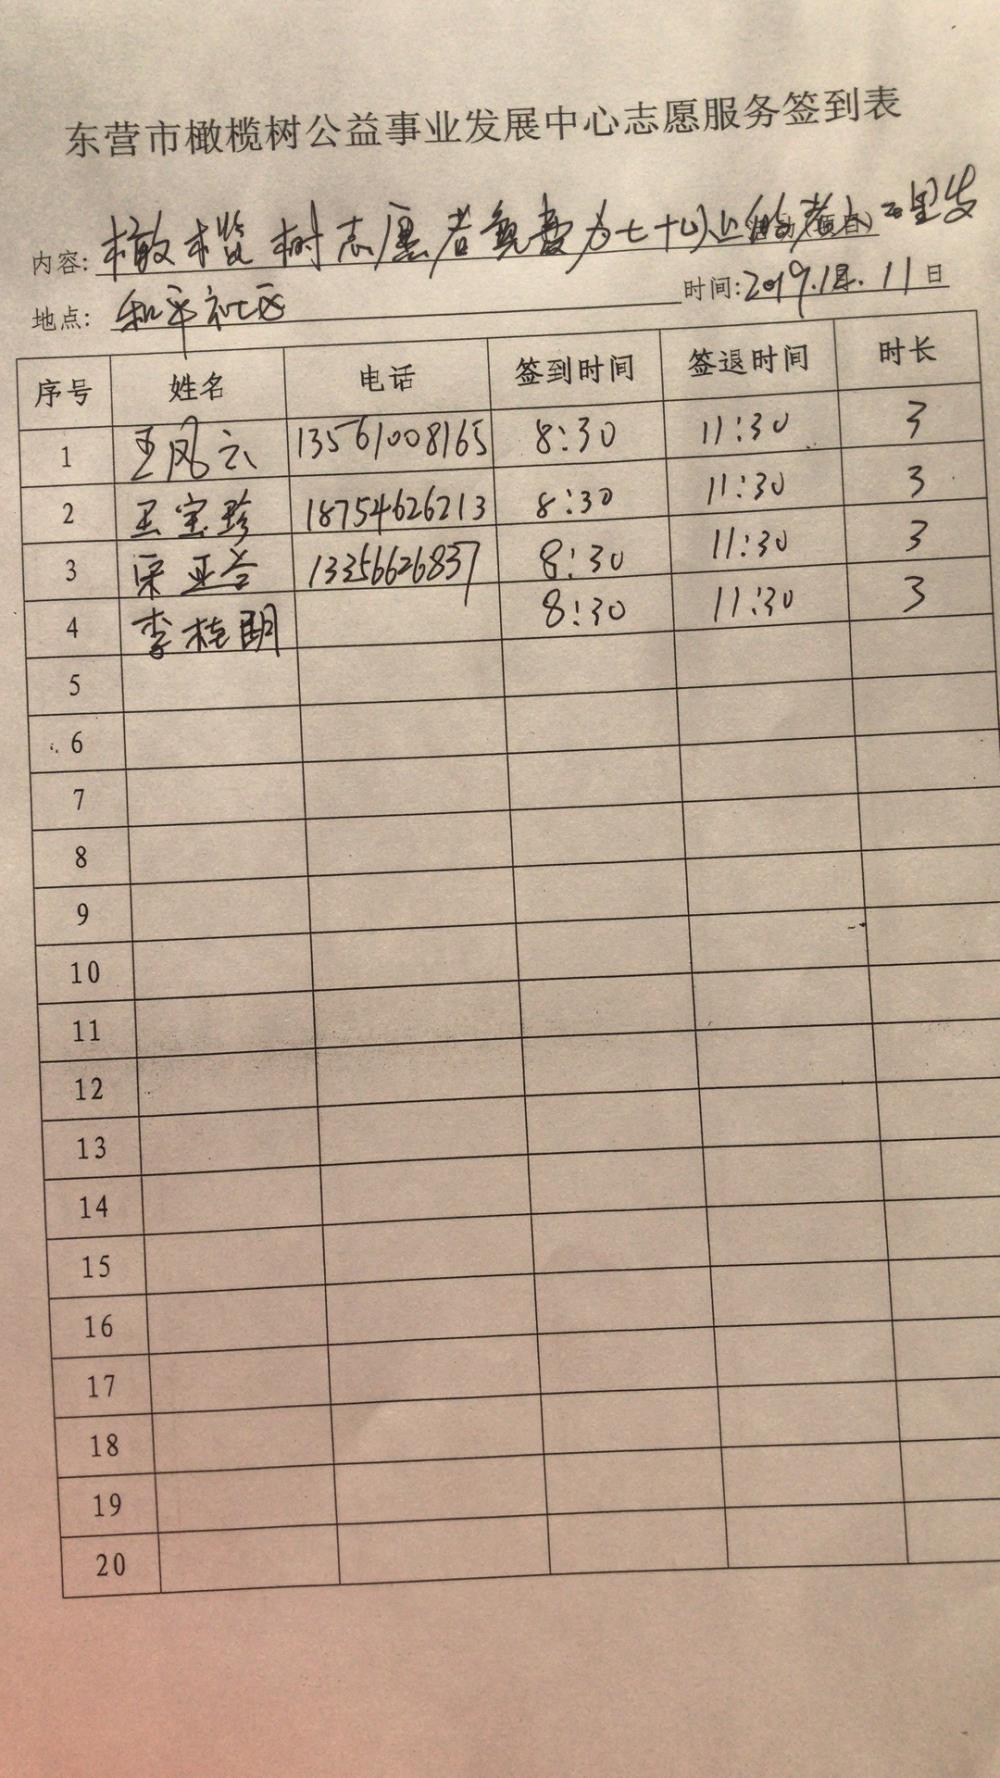 东营市橄榄树公益事业发展中心志愿服务签到表
内容: 橄榄树志愿者免费为七十以上的老人理发
地点: 和平社区 时间:2019.12.11日
序号 姓名 电话 签到时间 签退时间 时长
1 王风云 13561008165 8:30 11:30 3
2 王宝珍 18754626213 8:30 11:30 3
3 亚 13356626837 8:30 11:30 3
4 李桂 8:30 11:30 3
5
6
7
8
9
10
11
12
13
14
15
16
17
18
19
20